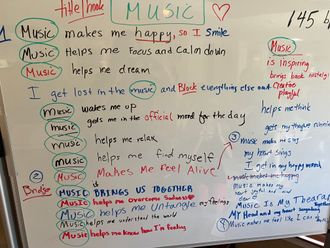 title/hook MUSIC
145 4
1
Music makes me happy, so I smile
Music Helps me Focus and Calm down
Music helps me dream
I get lost in the music and Block everything else out
music wakes me up
music gets me in the official mood for the day
music helps me relax
music helps me find myself
2 Music Makes Me Feel Alive
Bridge
MUSIC BRINGS US TOGETHER
Music helps me overcome Sadness
Music helps me Untangle my feelings
Music helps me understand the world
Music helps me know how I'm feeling
Music
is inspiring
brings back
Creative
playful
helps me think
3
get my
music make me sing
my heart sings
I get in my happy mood
music makes me happy
Music makes my
Music Is My
My Head and my heart